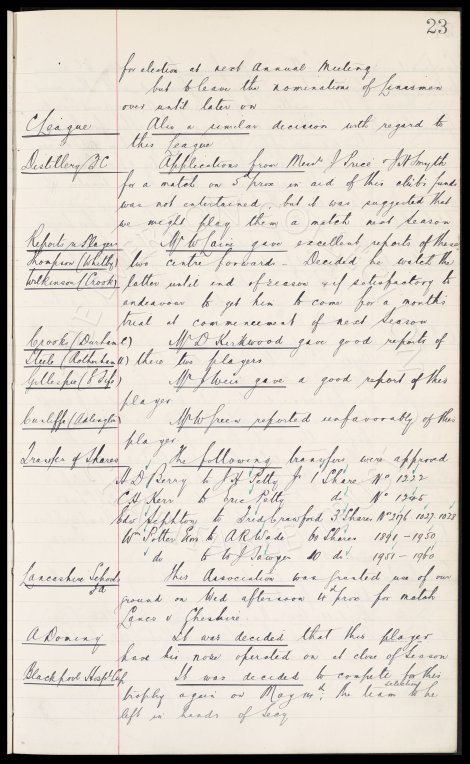 23
for election at next Annual Meeting
but to leave the nominations of Linesmen
over until later on
C League Also a similar decision with regard to
this League
Distillery F.C Applications from Messrs J Price & J H Smyth
for a match on 5th prox in aid of this clubs funds
was not entertained, but it was suggested that
we might play them a match next season
Reports re Players Mr W Laing gave excellent reports of these
Thompson (Whitby) two centre forwards - Decided he watch the
Wilkinson (Crook) latter until end of season & if satisfactory to
endeavour to get him to come for a months
trial at commencement of next Season
Crooks (Durham C) Mr D Kirkwood gave good reports of
Steele (Rotherham) these two players
Gillespie Mr J Weir gave a good report of this
player
Cunliffe (Adlington) Mr W Green reported unfavorably of this
player
Transfer of Shares The following transfers were approved
H D Berry to J H Petty Jr 1 Share No 1222
C H Kerr to Eric Petty do No 1245
Edw Sephton to Fred Crawford 3 Shares Nos 276. 1027. 1028
Wm Potter Exors to A R Wade 60 Shares 1891 - 1950
do to W J Sawyer 10 do 1951 - 1960
Lancashire Schools This Association was granted use of our
ground on Wed afternoon 4th prox for match
Lancs v Cheshire.
A Dominy It was decided that this player
have his nose operated on at close of Season
Blackpool Hospl Cup It was decided to compete for this
trophy again on May, the selection team to be
left in hands of Secy